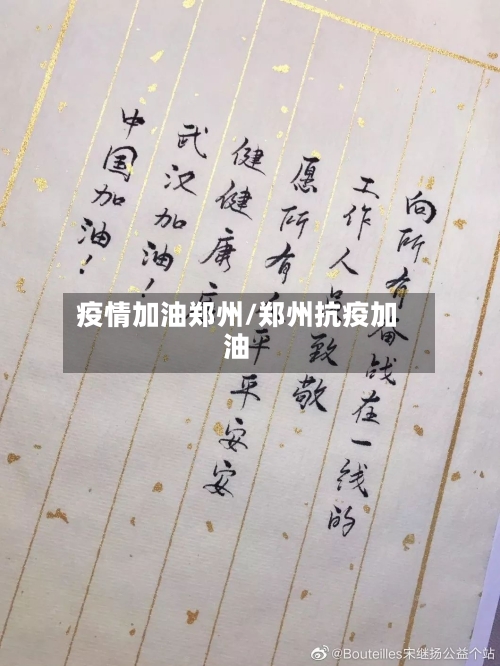 向所有奋战在一线的
工作人员致敬
愿所有人平平安安
健健康康
武汉加油！
中国加油！
疫情加油郑州/郑州抗疫加
油
@Bouteilles宋继扬公益个站